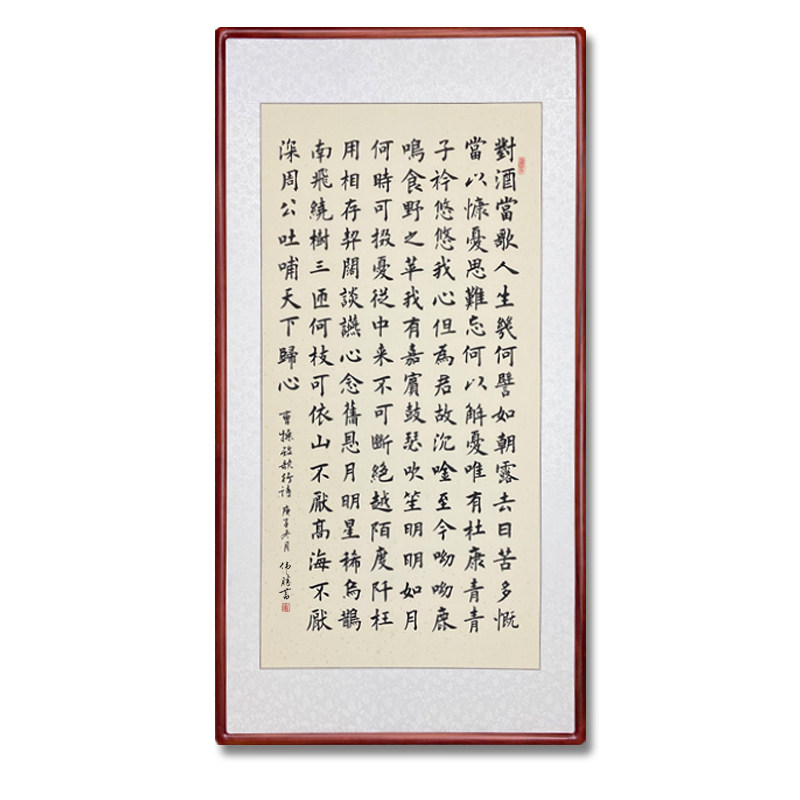 對酒當歌人生幾何譬如朝露去日苦多慨
當以慷憂思難忘何以解憂唯有杜康青青
子衿悠悠我心但為君故沉唫至今呦呦鹿
鳴食野之苹我有嘉賓鼓瑟吹笙明明如月
何時可掇憂從中来不可斷絶越陌度阡枉
用相存契闊談讌心念舊恩月明星稀烏鵲
南飛繞樹三匝何枝可依山不厭高海不厭
深周公吐哺天下歸心 曹操短歌行詩 庚子冬月 書